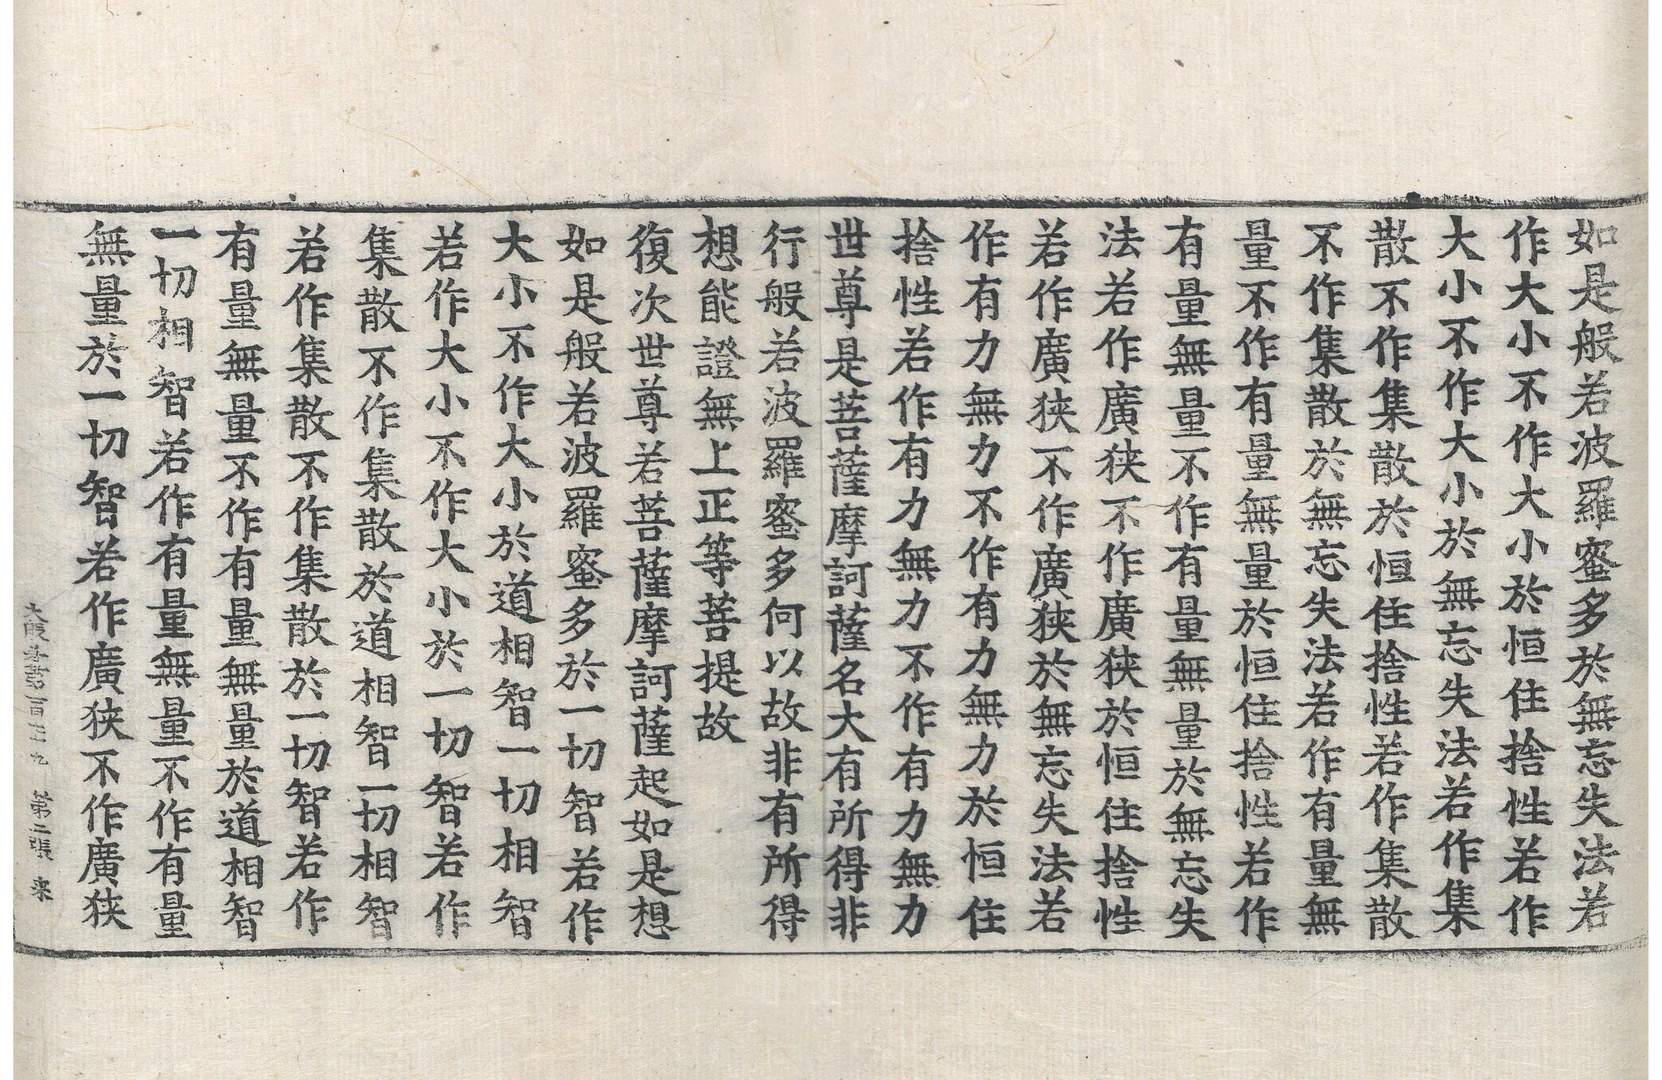 如是般若波羅蜜多於無忘失法若
作大小不作大小於恒住捨性若作
大小不作大小於無忘失法若作集
散不作集散於恒住捨性若作集散
不作集散於無忘失法若作有量無
量不作有量無量於恒住捨性若作
有量無量不作有量無量於無忘失
法若作廣狭不作廣狭於恒住捨性
若作廣狭不作廣狭於無忘失法若
作有力無力不作有力無力於恒住
捨性若作有力無力不作有力無力
世尊是菩薩摩訶薩名大有所得非
行般若波羅蜜多何以故非有所得
想能證無上正等菩提故
復次世尊若菩薩摩訶薩起如是想
如是般若波羅蜜多於一切智若作
大小不作大小於道相智一切相智
若作大小不作大小於一切智若作
集散不作集散於道相智一切相智
若作集散不作集散於一切智若作
有量無量不作有量無量於道相智
一切相智若作有量無量不作有量
無量於一切智若作廣狭不作廣狭
大般 第一百 九 第二張 来